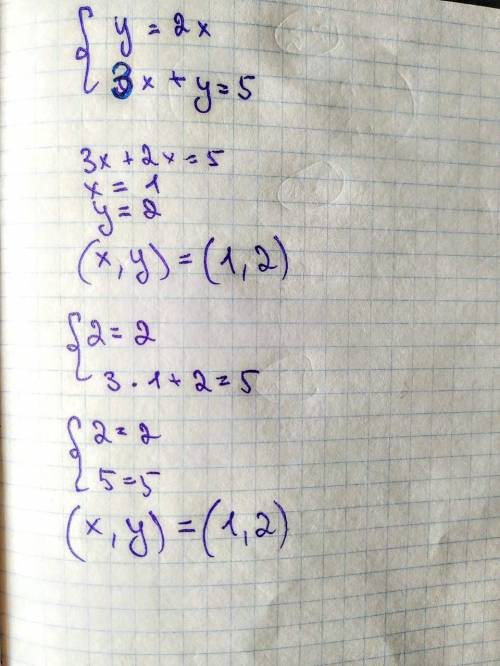 { y = 2x
3x + y = 5
3x + 2x = 5
x = 1
y = 2
(x, y) = (1, 2)
{ 2 = 2
3 · 1 + 2 = 5
{ 2 = 2
5 = 5
(x, y) = (1, 2)